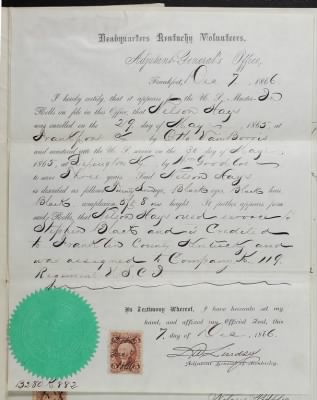 Headquarters Kentucky Volunteers,
Adjutant-General's Office,
Frankfort, Dec 7, 1866
I hereby certify, that it appears from the U. S. Muster-In
Rolls on file in this Office, that Nelson Hays
was enrolled on the 29 day of May, 1865, at
Frankfort by
and mustered into the U. S. service on the 30 day of May
1865, at Lexington Ky by
to serve Three years. Said Nelson Hays
is described as follows: age, Black eyes, Black hair,
Black complexion, 5 ft 8 ins height. It further appears from
said Rolls, that Nelson Hays owed service to
Stephen Black and is Credited
to Franklin County Kentucky and
was assigned to Company K. 119
Regiment U S C I
In Testimony Whereof, I have hereunto set my
hand, and affixed my Official Seal, this
7. day of Dec 1866.
D W Lindsey
Adjutant General of Kentucky.